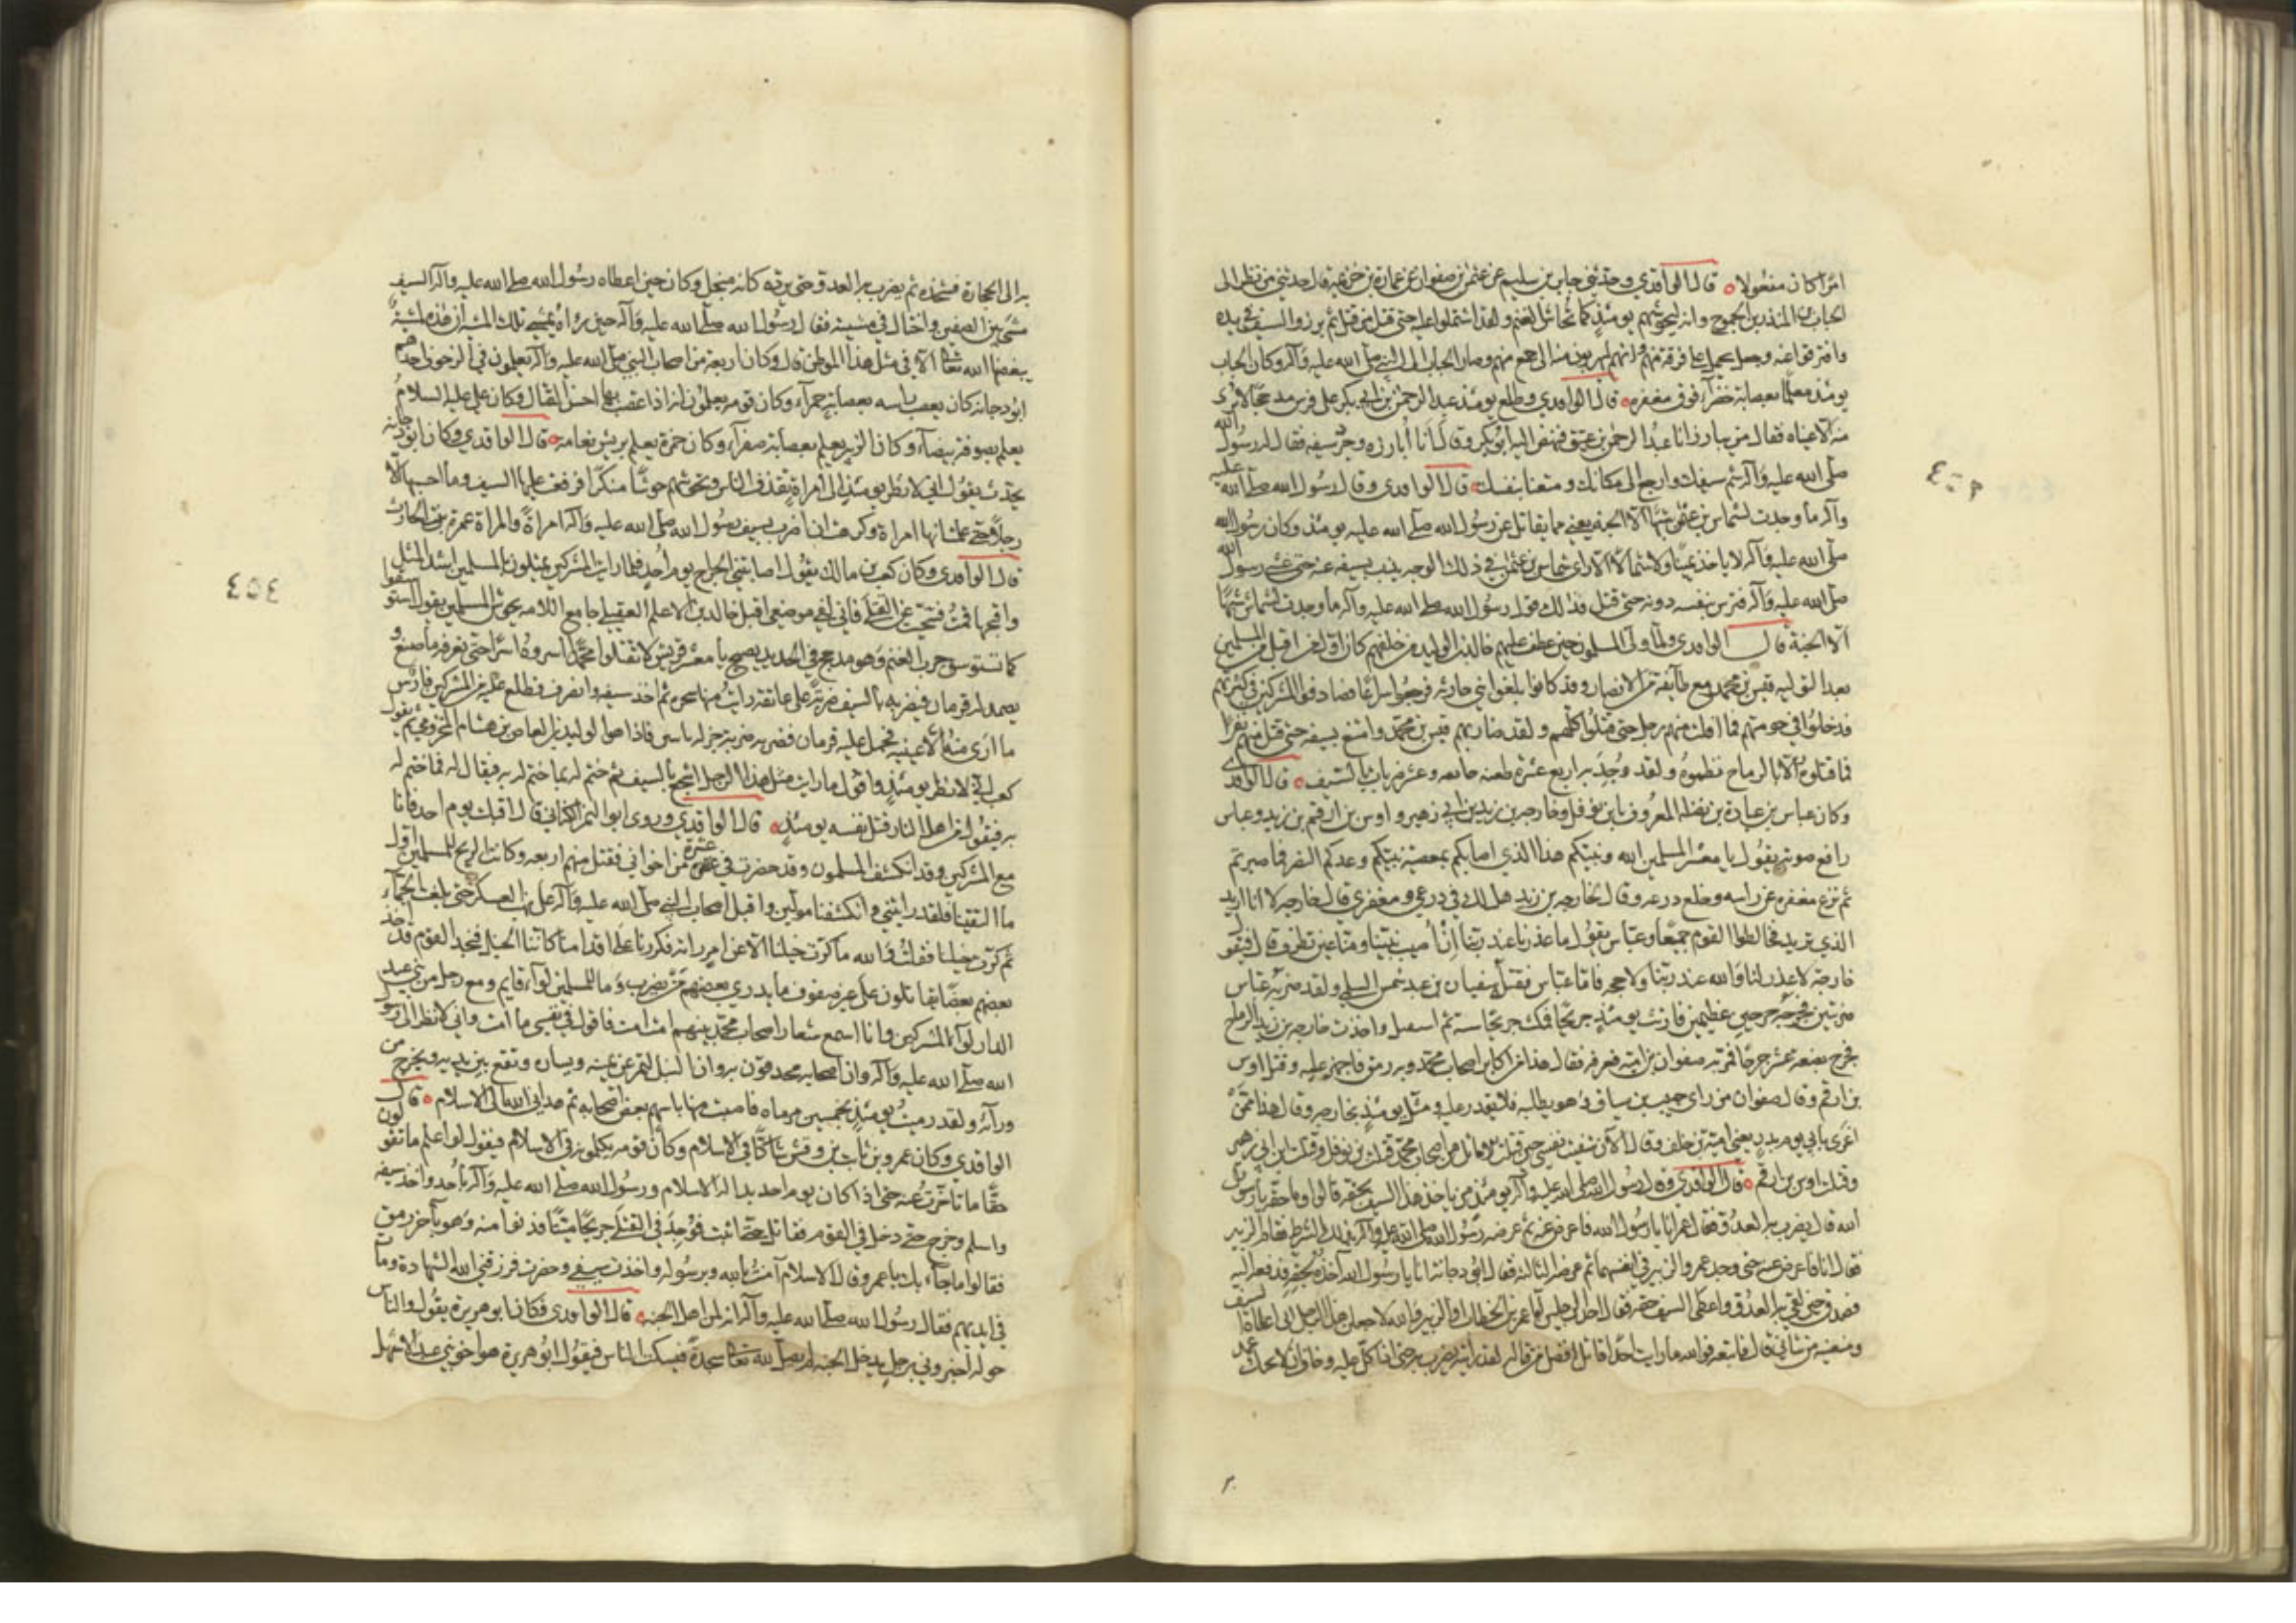 امرا كان مفعولا قال الواقدي وحدثني جابر بن سليم عن عثمن بن صفوان عن عمارة بن خزيمة قال حدثني من نظر الى
الحباب بن المنذر بن الجموح وانه ليحوشهم يومئذ كما تحاش الغنم ولقد اشتملوا عليه حتى قيل قد قتل ثم برز والسيف في يده
وافترقوا عنه وجعل يحمل على فرقة منهم وانهم ليهربون منه الى جمع منهم وصار الحباب الى النبي صلى الله عليه وآله وكان الحباب
يومئذ معلما بعصابة خضراء فوق مغفره قال الواقدي وطلع يومئذ عبد الرحمن بن ابي بكر على فرس مدججا لا يرى
منه الا عيناه فقال من يبارز انا عبد الرحمن بن عتيق فنهض اليه ابو بكر وقال انا ابارزه وجرد سيفه فقال له رسول الله
صلى الله عليه وآله شم سيفك وارجع الى مكانك ومتعنا بنفسك قال الواقدي وقال رسول الله صلى الله عليه
وآله ما وجدت لشماس بن عثمن شبها الا الجنة يعني مما يقاتل عن رسول الله صلى الله عليه يومئذ وكان رسول الله
صلى الله عليه وآله لا ياخذ يمينا ولا شمالا الا راى شماس بن عثمن في ذلك الوجه يذب بسيفه عنه حتى غشي رسول الله
صلى الله عليه وآله فترس بنفسه دونه حتى قتل فذلك قول رسول الله صلى الله عليه وآله ما وجدت لشماس شبها
الا الجنة قال الواقدي ولما ولى المسلمون حين عطف عليهم خالد بن الوليد من خلفهم كان اول من اقبل من المسلمين
بعد التولية قيس بن محمد مع طائفة من الانصار وقد كانوا بلغوا بني حارثة فرجعوا سراعا فصادفوا المشركين في كرتهم
فدخلوا في حومتهم فما افلت منهم رجل حتى قتلوا كلهم ولقد ضاربهم قيس بن محمد وامتنع بسيفه حتى قتل منهم نفرا
فما قتلوه الا بالرماح نظموه ولقد وجد به اربع عشرة طعنة جائفة وعشر ضربات بالسيف قال الواقدي
وكان عباس بن عبادة بن نضلة المعروف بابن نوفل وخارجة بن زيد بن ابي زهير واوس بن ارقم بن زيد وعباس
رافع صوته يقول يا معشر المسلمين الله ونبيكم هذا الذي اصابكم بمعصية نبيكم وعدكم النصر فما صبرتم
ثم نزع مغفره عن راسه وخلع درعه وقال لخارجة بن زيد هل لك في درعي ومغفري قال خارجة لا انا اريد
الذي تريد فخالطوا القوم جميعا وعباس يقول ما عذرنا عند ربنا ان اصيب نبينا ومنا عين تطرف قال فيقول
خارجة لا عذر لنا والله عند ربنا ولا حجة فاما عباس فقتله سفيان بن عبد شمس السلمي ولقد ضربه عباس
ضربتين فجرحه جرحين عظيمين فارتث يومئذ جريحا فمكث جريحا سنة ثم استبل واخذت خارجة بن زيد الرماح
فجرح بضعة عشر جرحا فمر به صفوان بن امية فعرفه فقال هذا من اكابر اصحاب محمد وبه رمق فاجهز عليه وقتل اوس
بن ارقم وقال صفوان من راى حبيب بن يساف وهو يطلبه فلا يقدر عليه ومثل يومئذ بخارجة وقال هذا ممن
اغرى بابي يوم بدر يعني امية بن خلف وقال الآن شفيت نفسي حين قتلت الاماثل من اصحاب محمد قتلت بن نوفل وقتلت ابن ابي زهير
وقتلت اوس بن ارقم قال الواقدي وقال رسول الله صلى الله عليه وآله يومئذ من ياخذ هذا السيف بحقه قالوا وما حقه يا رسول
الله قال يضرب به العدو فقال عمر انا يا رسول الله فاعرض عنه ثم عرضه رسول الله صلى الله عليه وآله بذلك الشرط فقام الزبير
فقال انا فاعرض عنه حتى وجد عمر والزبير في انفسهما ثم عرضه الثالثة فقال ابو دجانة انا يا رسول الله آخذه بحقه فدفعه اليه
فصدق حين لقي به العدو واعطى السيف حقه فقال احد الرجلين اما عمر بن الخطاب او الزبير والله لاجعلن هذا الرجل الذي اعطاه السيف
ومنعنيه من شاني قال فاتبعته فوالله ما رايت احدا قاتل افضل من قتاله لقد رايته يضرب به حتى اذا كل عليه وخاف ان لا يحيك عمد
به الى الحجارة فشحذه ثم يضرب به العدو حتى يرده كانه منجل وكان حين اعطاه رسول الله صلى الله عليه وآله السيف
مشى بين الصفين واختال في مشيته فقال رسول الله صلى الله عليه وآله حين رآه يمشي تلك المشية ان هذه لمشية
يبغضها الله تعالى الا في مثل هذا الموطن قال وكان اربعة من اصحاب النبي صلى الله عليه وآله يعلمون في الزحوف احدهم
ابو دجانة كان يعصب راسه بعصابة حمراء وكان قومه يعلمون انه اذا اعتصب بها احسن القتال وكان علي عليه السلام
يعلم بصوفة بيضاء وكان الزبير يعلم بعصابة صفراء وكان حمزة يعلم بريش نعامة قال الواقدي وكان ابو دجانه
يحدث يقول اني لانظر يومئذ الى امراة تقذف الناس وتحوشهم حوشا منكرا فرفعت عليها السيف وما احسبها الا
رجلا حتى علمت انها امراة وكرهت ان اضرب بسيف رسول الله صلى الله عليه وآله امراة والمراة عمرة بنت الحارث
قال الواقدي وكان كعب بن مالك يقول اصابتني الجراح يوم احد فلما رايت المشركين يمثلون بالمسلمين اشد المثل
واقبحها قمت فتنحيت عن القتلى فاني لفي موضعي اقبل خالد بن الاعلم العقيلي جامع اللامة يحوش المسلمين يقول استوسقوا
كما تستوسق جرب الغنم وهو مدجج في الحديد يصيح يا معشر قريش لا تقتلوا محمدا اسروه اسرا حتى نعرفه ما صنع و
يصمد له قزمان فيضربه بالسيف ضربة على عاتقه رايت منها سحره ثم اخذ سيفه وانصرف فطلع عليه من المشركين فارس
ما ارى منه الا عينيه فحمل عليه قزمان فضربه ضربة جزله باثنين فاذا هو الوليد بن العاص بن هشام المخزومي ثم يقول
كعب اني لانظر يومئذ واقول ما رايت مثل هذا الرجل اشجع بالسيف ثم ختم له بما ختم له به فيقال له فما ختم له
به فيقول من اهل النار قتل نفسه يومئذ قال الواقدي وروى ابو النمر الكناني قال اقبلت يوم احد وانا
مع المشركين وقد انكشف المسلمون وقد حضرت في عشرة من اخواني فقتل منهم اربعة وكانت الريح للمسلمين اول
ما التقينا فلقد رايتني وانكشفنا مولين واقبل اصحاب النبي صلى الله عليه وآله على نهب العسكر حتى بلغت الجماء
ثم كرت خيلنا فقلت والله ما كرت خيلنا الا عن امر راته فكررنا على اقدامنا كاننا الخيل فنجد القوم قد اخذ
بعضهم بعضا يقاتلون على غير صفوف ما يدري بعضهم من يضرب وما للمسلمين لواء قايم ومع رجل من بني عبد
الدار لواء المشركين وانا اسمع شعار اصحاب محمد بينهم امت امت فاقول في نفسي ما امت واني لانظر الى رسول
الله صلى الله عليه وآله وان اصحابه محدقون به وان النبل لتمر عن يمينه ويساره وتقع بين يديه ويخرج من
ورائه ولقد رميت يومئذ بخمسين مرماة فاصبت منها باسهم بعض اصحابه ثم هداني الله الى الاسلام قال
الواقدي وكان عمرو بن ثابت بن وقش شاكا في الاسلام وكان قومه يكلمونه في الاسلام فيقول لو اعلم ما تقولون
حقا ما تاخرت عنه حتى اذا كان يوم احد بدا له الاسلام ورسول الله صلى الله عليه وآله باحد واخذ سيفه
واسلم وخرج حتى دخل في القوم فقاتل حتى اثبت فوجد في القتلى جريحا ميتا فدنوا منه وهو بآخر رمق
فقالوا ما جاء بك يا عمرو قال الاسلام آمنت بالله وبرسوله واخذت سيفي وحضرت فرزقني الله الشهادة ومات
في ايديهم فقال رسول الله صلى الله عليه وآله انه لمن اهل الجنة قال الواقدي فكان ابو هريرة يقول والناس
حوله اخبروني برجل يدخل الجنة لم يصل لله تعالى سجدة فيسكت الناس فيقول ابو هريرة هو اخو بني عبد الاشهل
٤٥٤